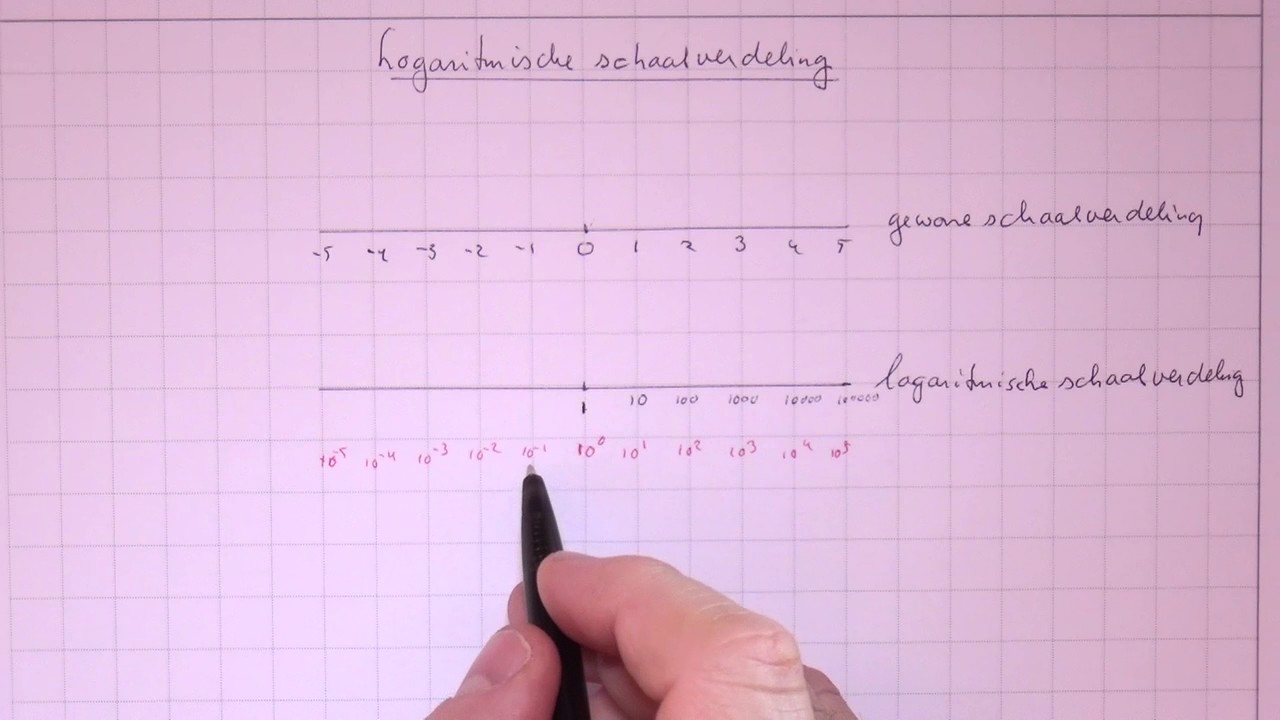 Logaritmische schaalverdeling
gewone schaalverdeling
-5 -4 -3 -2 -1 0 1 2 3 4 5
logaritmische schaalverdeling
1 10 100 1000 10000 100000
10⁻⁵ 10⁻⁴ 10⁻³ 10⁻² 10⁻¹ 10⁰ 10¹ 10² 10³ 10⁴ 10⁵